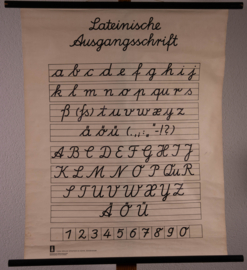 Lateinische
Ausgangsschrift
a b c d e f g h i j
k l m n o p qu r s
ß (ſs) t u v w x y z
ä ö ü (.,:;„“-!?)
A B C D E F G H I J
K L M N O P Qu R
S T U V W X Y Z
Ä Ö Ü
1 2 3 4 5 6 7 8 9 0